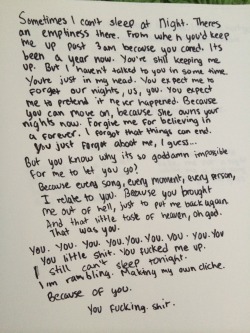 Sometimes I can't sleep at Night. Theres
an emptiness there. From when you'd keep
me up past 3am because you cared. Its
been a year now. You're still keeping me
up. But I haven't talked to you in some time.
You're just in my head. You expect me to
forget our nights, us, you. You expect
me to pretend it never happened. Because
you can move on, because she owns your
nights now. Forgive me for believing in
a forever. I forgot that things can end.
You just forgot about me, I guess...
But you know why its so goddamn impossible
For me to let you go?
Because every song, every moment, every person,
I relate to you. Because you brought
me out of hell, just to put me back again.
And that little taste of heaven, oh god.
That was you.
You. You. You. You. You. You. You. You
You little shit. You fucked me up.
I still can't sleep tonight.
I'm rambling. Making my own cliche.
Because of you.
You fucking shit.